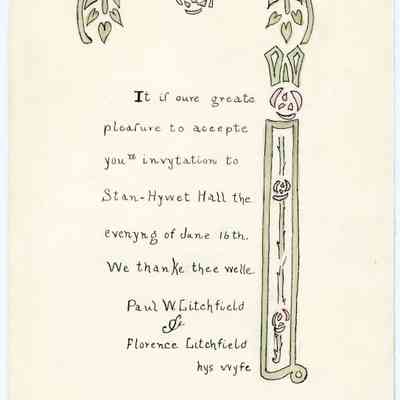 It is oure greate
pleasure to accepte
you^re invytation to
Stan-Hywet Hall the
evenyng of June 16th.
We thanke thee welle.
Paul W. Litchfield
&
Florence Litchfield
hys wyfe